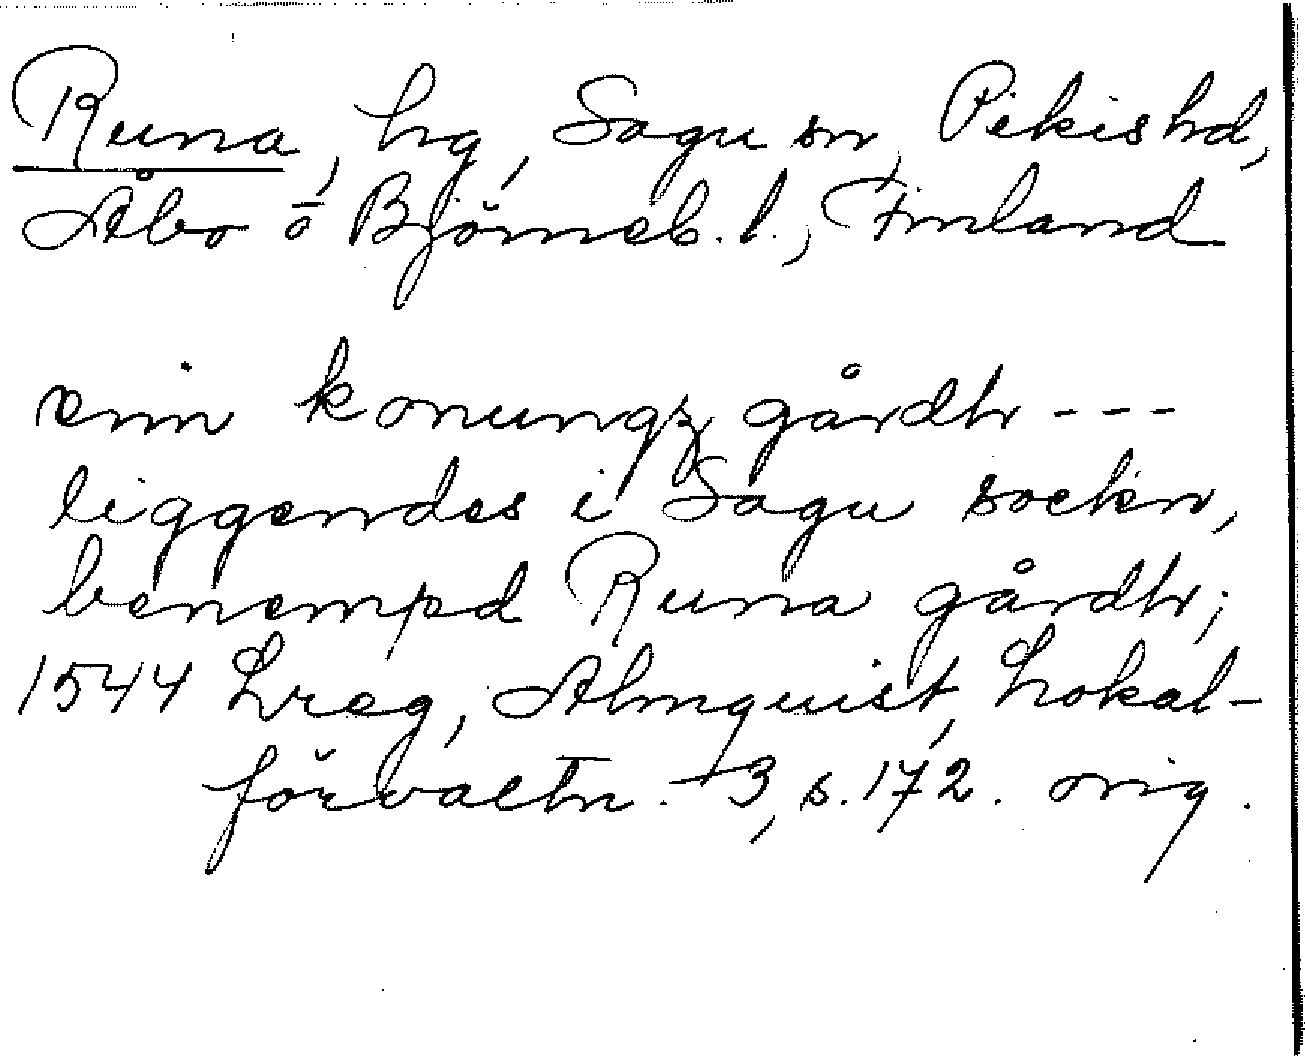 Runa, hg, Sagu sn, Pikis hd,
Åbo o Björneb. l., Finland
enn konungz gårdh ---
liggendes i Sagu sockn,
benempd Runa gårdh;
1544 Lreg, Almquist, Lokal-
förvaltn. 3, s. 172. orig.